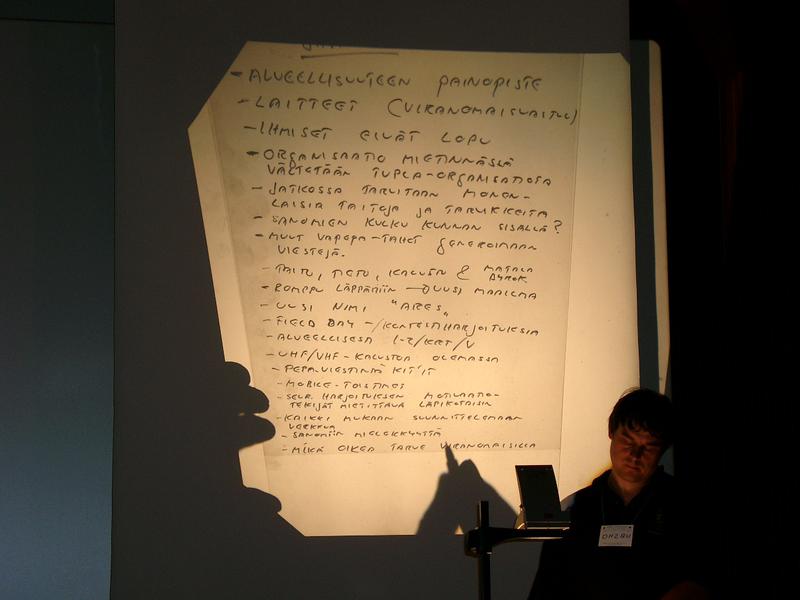 - ALUEELLISUUTEEN PAINOPISTE
- LAITTEET (VIRANOMAISVAITU)
- IHMISET EIVÄT LOPU
- ORGANISAATIO MIETINNÄSSÄ
VÄLTETÄÄN TUPLA-ORGANISATIOTA
- JATKOSSA TARVITAAN MONEN-
LAISIA TAITOJA JA TARVIKKEITA
- SANOMIEN KULKU KUNNAN SISÄLLÄ?
- MUUT VAPEPA-TAHOT GENEROIMAAN
VIESTEJÄ.
- TAITO, TIETO, KALUSTO & MATALA
- ROMPPU LÄPPÄRIIN → UUSI MAAILMA
- UUSI NIMI "ARES"
- FIELD DAY -/KONTESTIHARJOITUKSIA
- ALUEELLISESSA 1-2/KRT/V
- UHF/VHF-KALUSTOA OLEMASSA
- PEPA-VIESTINTÄ KIT'IT
- MOBILE-TOISTIMET
- SEUR. HARJOITUKSEN MOTIVAATIO-
TEKIJÄT MIETITTÄVÄ LÄPIKOTAISIN
- KAIKKI MUKAAN SUUNNITTELEMAAN
VERKKOA
- SANOMIIN MIELEKKYYTTÄ
- MIKÄ OIKEA TARVE VIRANOMAISILLA